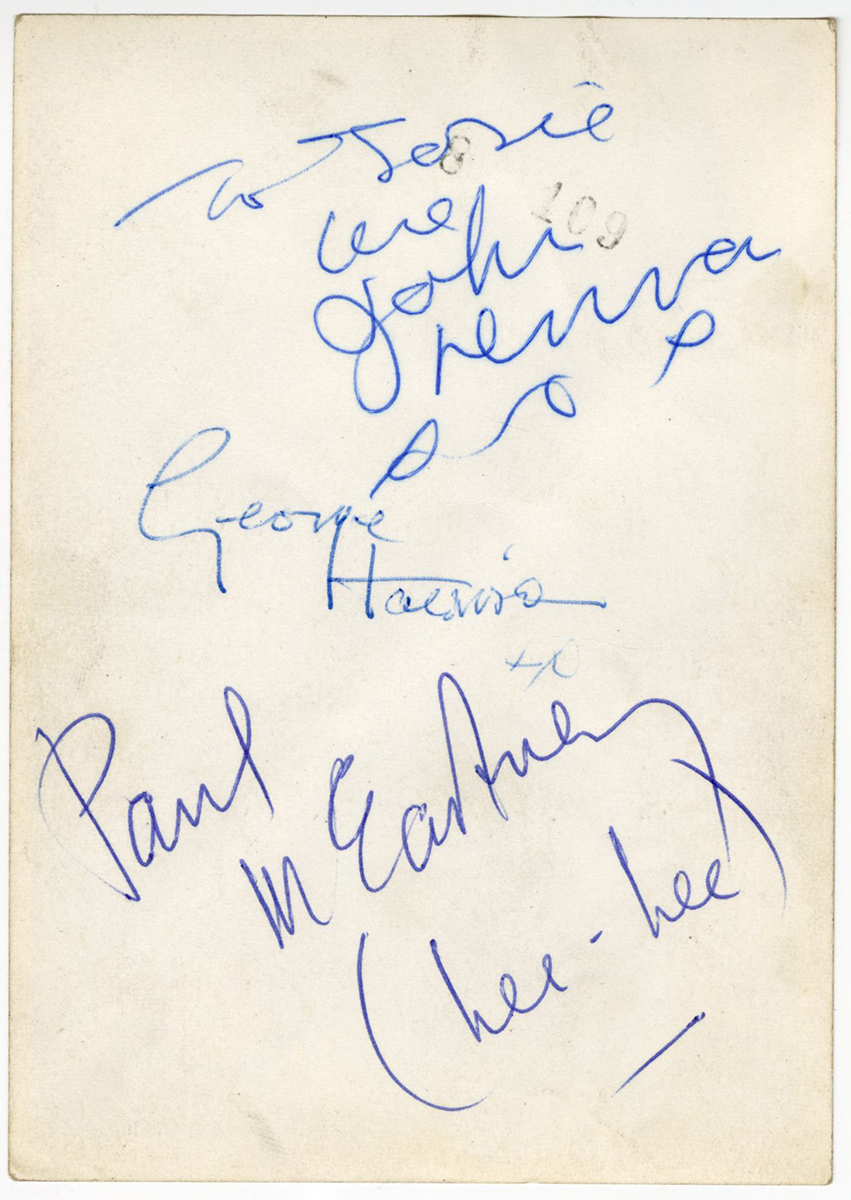 To Josie
love
John
Lennon
8
109
George
Harrison
Paul
McCartney
(hee-hee)